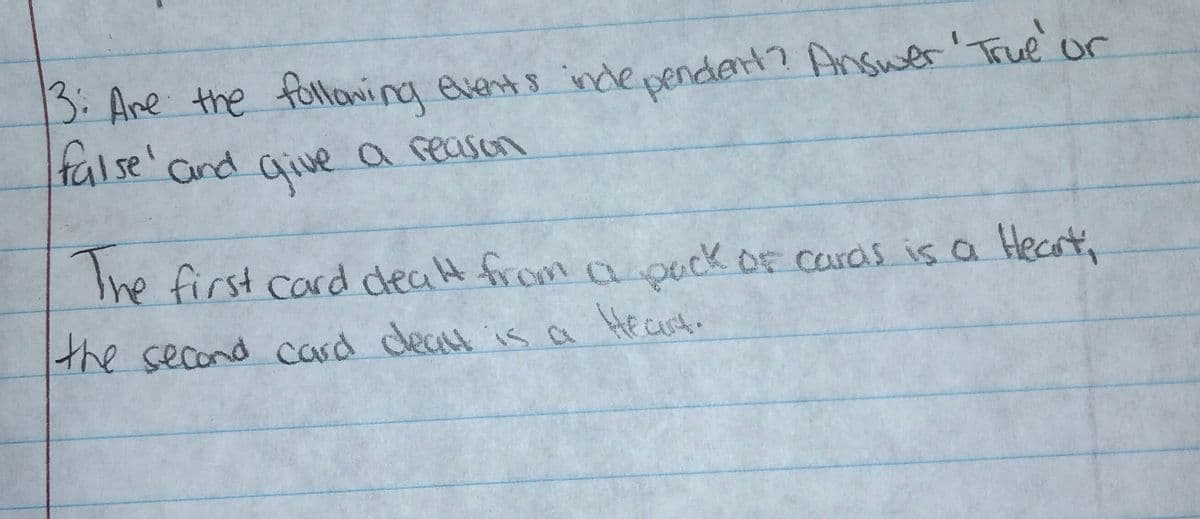 3: Are the following events independent? Answer 'True' or
false' and give a reason
The first card dealt from a pack of cards is a Heart,
the second card dealt is a Heart.